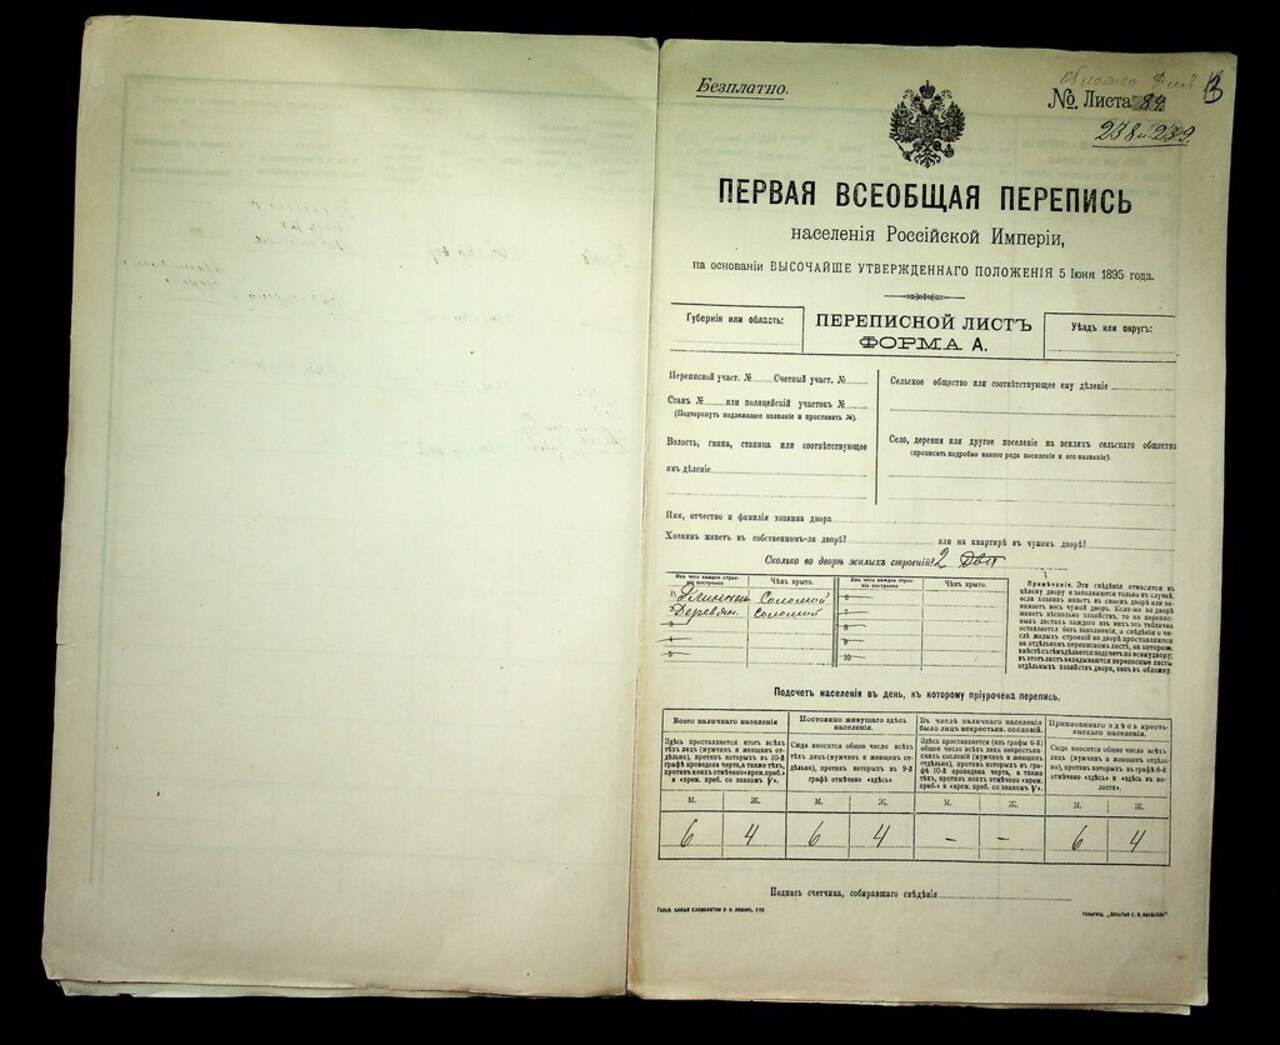 Безплатно.
Обложка Для
№. Листа 84
238 и 239
ПЕРВАЯ ВСЕОБЩАЯ ПЕРЕПИСЬ
населенія Россійской Имперіи,
на основаніи ВЫСОЧАЙШЕ УТВЕРЖДЕННАГО ПОЛОЖЕНІЯ 5 Іюня 1895 года.
Губернія или область:
ПЕРЕПИСНОЙ ЛИСТЪ
ФОРМА А.
Уѣздъ или округъ:
Переписной участ. № Счетный участ. №
Станъ № или полицейскій участокъ №
(Подчеркнуть подлежащее названіе и проставить №).
Волость, гмина, станица или соотвѣтствующее
имъ дѣленіе
Сельское общество или соотвѣтствующее ему дѣленіе
Село, деревня или другое поселеніе на земляхъ сельскаго общества
(прописать подробно какого рода поселеніе и его названіе).
Имя, отчество и фамилія хозяина двора
Хозяинъ живетъ въ собственномъ-ли дворѣ? или на квартирѣ въ чужомъ дворѣ?
Сколько во дворѣ жилыхъ строеній? 2 Два
Изъ чего каждое строе-
ніе построено
Чѣмъ крыто.
1 Глиняный Соломой
2 Деревян. Соломой
3
4
5
Изъ чего каждое строе-
ніе построено
Чѣмъ крыто.
6
7
8
9
10
Примѣчаніе. Эти свѣдѣнія относятся къ
цѣлому двору и заполняются только въ случаѣ,
если хозяинъ живетъ въ своемъ дворѣ или за-
нимаетъ весь чужой дворъ. Если-же во дворѣ
живетъ нѣсколько хозяйствъ, то на перепис-
ныхъ листахъ каждаго изъ нихъ эта табличка
оставляется безъ заполненія, а свѣдѣнія о чи-
слѣ жилыхъ строеній во дворѣ проставляются
на отдѣльномъ переписномъ листѣ, на которомъ
вмѣстѣ съ тѣмъ дѣлается подсчетъ по всему двору;
въ этотъ листъ вкладываются переписные листы
отдѣльныхъ хозяйствъ двора, какъ въ обложку.
Подсчетъ населенія въ день, къ которому пріурочена перепись.
Всего наличнаго населенія
Здѣсь проставляется итогъ всѣхъ
тѣхъ лицъ (мужчинъ и женщинъ от-
дѣльно), противъ которыхъ въ 10-й
графѣ проведена черта, а также тѣхъ,
противъ коихъ отмѣчено «врем. преб.»
и «врем. преб. со знакомъ V».
Постоянно живущаго здѣсь
населенія.
Сюда вносится общее число всѣхъ
тѣхъ лицъ (мужчинъ и женщинъ от-
дѣльно), противъ которыхъ въ 9-й
графѣ отмѣчено «здѣсь»
Въ числѣ наличнаго населенія
было лицъ некрестьян. сословій.
Здѣсь проставляется (изъ графы 6-й)
общее число всѣхъ лицъ некрестьян-
скихъ сословій (мужчинъ и женщинъ
отдѣльно), противъ которыхъ въ гра-
фѣ 10-й проведена черта, а также
тѣхъ, противъ коихъ отмѣчено «врем.
преб.» и «врем. преб. со знакомъ V».
Приписаннаго здѣсь кресть-
янскаго населенія.
Сюда вносится общее число всѣхъ
лицъ (мужчинъ и женщинъ отдѣль-
но), противъ которыхъ въ графѣ 8-й
отмѣчено «здѣсь» и «здѣсь въ во-
лости».
М. Ж. М. Ж. М. Ж. М. Ж.
6 4 6 4 – – 6 4
Подпись счетчика, собиравшаго свѣдѣнія